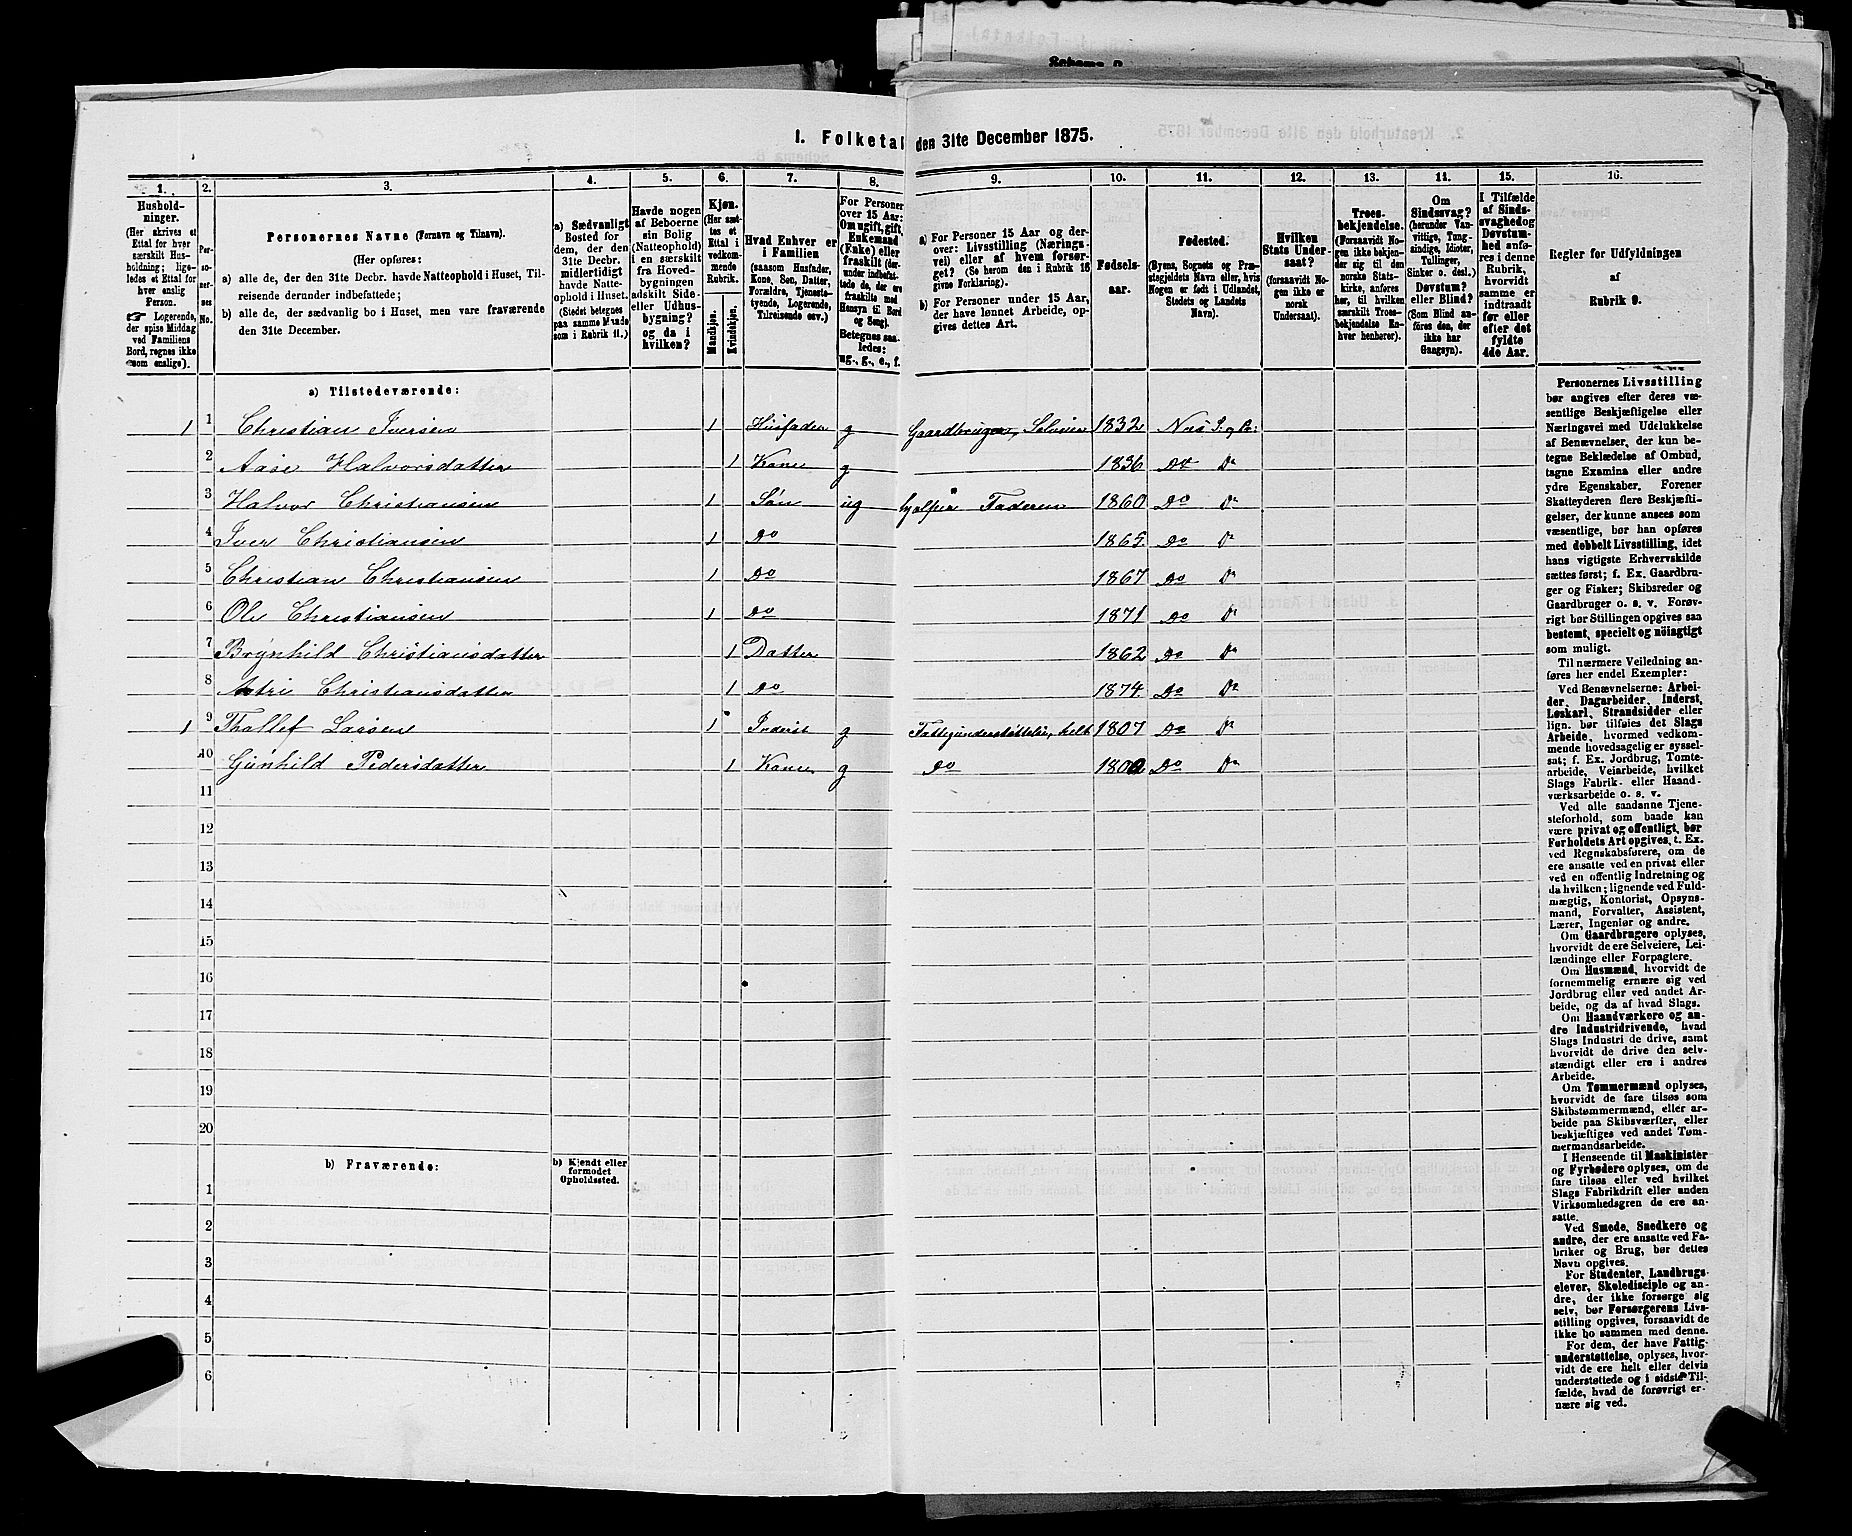 Schema B
1. Folketal den 31te December 1875.
1.
Hushold-
ninger.
(Her skrives et
Ettal for hver
særskilt Hus-
holdning; lige-
ledes et Ettal for
hver enslig
Person.
☞ Logerende,
der spise Middag
ved Familiens
Bord, regnes ikke
som enslige).
2.
Per-
so-
ner-
nes
No.
3.
Personernes Navne (Fornavn og Tilnavn).
(Her opføres:
a) alle de, der den 31te Decbr. havde Natteophold i Huset, Til-
reisende derunder indbefattede;
b) alle de, der sædvanlig bo i Huset, men vare fraværende
den 31te December.
4.
a) Sædvanligt
Bosted for
dem, der den
31te Decbr.
midlertidigt
havde Natte-
ophold i Huset.
(Stedet betegnes
paa samme Maade
som i Rubrik 11.)
5.
Havde nogen
af Beboerne
sin Bolig
(Natteophold)
i en særskilt
fra Hoved-
bygningen
adskilt Side-
eller Udhus-
bygning?
og da i
hvilken?
6.
Kjøn.
(Her sæt-
tes et
Ettal i
vedkom-
mende
Rubrik.
Mandkjøn.
Kvindekjøn.
7.
Hvad Enhver er
i Familien
(saasom Husfader,
Kone, Søn, Datter,
Forældre, Tjenest-
tyende, Logerende,
Tilreisende osv.)
8.
For Personer
over 15 Aar:
Om ugift, gift,
Enkemand
(Enke) eller
fraskilt (her-
under indbefat-
tede de, der ere
fraskilte med
Hensyn til Bord
og Seng).
Betegnes saa-
ledes:
ug., g., e., f.
9.
a) For Personer 15 Aar og der-
over: Livsstilling (Nærings-
vei) eller af hvem forsør-
get? (Se herom den i Rubrik 16
givne Forklaring).
b) For Personer under 15 Aar,
der have lønnet Arbeide, op-
gives dettes Art.
10.
Fødsels-
aar.
11.
Fødested.
(Byens, Sognets og Præ-
stegjeldets Navn eller, hvis
Nogen er født i Udlandet,
Stedets og Landets
Navn).
12.
Hvilken
Stats Under-
saat?
(forsaavidt No-
gen ikke er
norsk
Undersaat).
13.
Troes-
bekjendelse.
(Forsaavidt No-
gen ikke bekjen-
der sig til den
norske Stats-
kirke, anføres
her, til hvilken
særskilt Troes-
bekjendelse En-
hver henhører).
14.
Om
Sindssvag?
(herunder Van-
vittige, Tung-
sindige, Idioter,
Tullinger,
Sinker o. desl.)
Døvstum?
eller Blind?
(Som Blind an-
føres den, der
ikke har
Gangsyn).
15.
I Tilfælde
af Sinds-
svaghed og
Døvstum-
hed anfø-
res i denne
Rubrik,
hvorvidt
samme er
indtraadt
før eller
efter det
fyldte
4de Aar.
16.
Regler for Udfyldningen
af
Rubrik 9.
a) Tilstedeværende:
1 1 Christian Iversen 1 Husfader g Gaardbruger, Selveier 1832 Næs S. og Pr:
2 Aase Halvorsdatter 1 Kone g 1836 Do Do
3 Halvor Christiansen 1 Søn ug hjelper Faderen 1860 Do Do
4 Iver Christiansen 1 Do 1865 Do Do
5 Christian Christiansen 1 Do 1867 Do Do
6 Ole Christiansen 1 Do 1871 Do Do
7 Brynhild Christiansdatter 1 Datter 1862 Do Do
8 Astri Christiansdatter 1 Do 1874 Do Do
1 9 Thollef Lassen 1 Inderst g Fattigunderstøttelse, helt 1807 Do Do
10 Gunhild Pedersdatter 1 Kone g Do Do Do
11
12
13
14
15
16
17
18
19
20
b) Fraværende:
b) Kjendt eller
formodet
Opholdssted.
1
2
3
4
5
6
Personernes Livsstilling
bør angives efter deres væ-
sentlige Beskjæftigelse eller
Næringsvei med Udelukkelse
af Benævnelser, der kun be-
tegne Beklædelse af Ombud,
tagne Examina eller andre
ydre Egenskaber. Forener
Skatteyderen flere Beskjæfti-
gelser, der kunne ansees som
væsentlige, bør han opføres
med dobbelt Livsstilling, idet
hans vigtigste Erhvervskilde
sættes først; f. Ex. Gaardbru-
ger og Fisker; Skibsreder og
Gaardbruger o. s. v. Forøv-
rigt bør Stillingen opgives saa
bestemt, specielt og nöiagtigt
som muligt.
Til nærmere Veiledning an-
føres her endel Exempler:
Ved Benævnelserne: Arbei-
der, Dagarbeider, Inderst,
Løskarl, Strandsidder eller
lign. bør tilføies det Slags
Arbeide, hvormed vedkom-
mende hovedsagelig er syssel-
sat; f. Ex. Jordbrug, Tomte-
arbeide, Veiarbeide, hvilket
Slags Fabrik- eller Haand-
værksarbeide o. s. v.
Ved alle saadanne Tjene-
steforhold, som baade kan
være privat og offentligt, bør
Forholdets Art opgives, f. Ex.
ved Regnskabsførere, om de
ere ansatte ved en privat eller
ved en offentlig Indretning og
da hvilken; lignende ved Fuld-
mægtig, Kontorist, Opsyns-
mand, Forvalter, Assistent,
Lærer, Ingeniør og andre.
Om Gaardbrugere oplyses,
hvorvidt de ere Selveiere, Lei-
lændinge eller Forpagtere.
Om Husmænd, hvorvidt de
fornemmelig ernære sig ved
Jordbrug eller ved andet Ar-
beide, og da af hvad Slags.
Om Haandværkere og an-
dre Industridrivende, hvad
Slags Industri de drive, samt
hvorvidt de drive den selv-
stændigt eller ere i andres
Arbeide.
Om Tømmermænd oplyses,
hvorvidt de fare tilsøs som
Skibstømmermænd, eller ar-
beide paa Skibsværfter, eller
beskjæftiges ved andet Tøm-
mermandsarbeide.
I Henseende til Maskinister
og Fyrbødere oplyses, om de
fare tilsøs eller ved hvilket
Slags Fabrikdrift eller anden
Virksomhedsgren de ere an-
satte.
Ved Smede, Snedkere og
andre, der ere ansatte ved Fa-
briker og Brug, bør dettes
Navn opgives.
For Studenter, Landbrugs-
elever, Skoledisciple og an-
dre, der ikke forsørge sig
selv, bør Forsørgerens Livs-
stilling opgives, forsaavidt de
ikke bo sammen med denne.
For dem, der have Fattig-
understøttelse, oplyses, hvor-
vidt de ere helt eller delvis
understøttede og i sidste Til-
fælde, hvad de forøvrigt er-
nære sig ved.